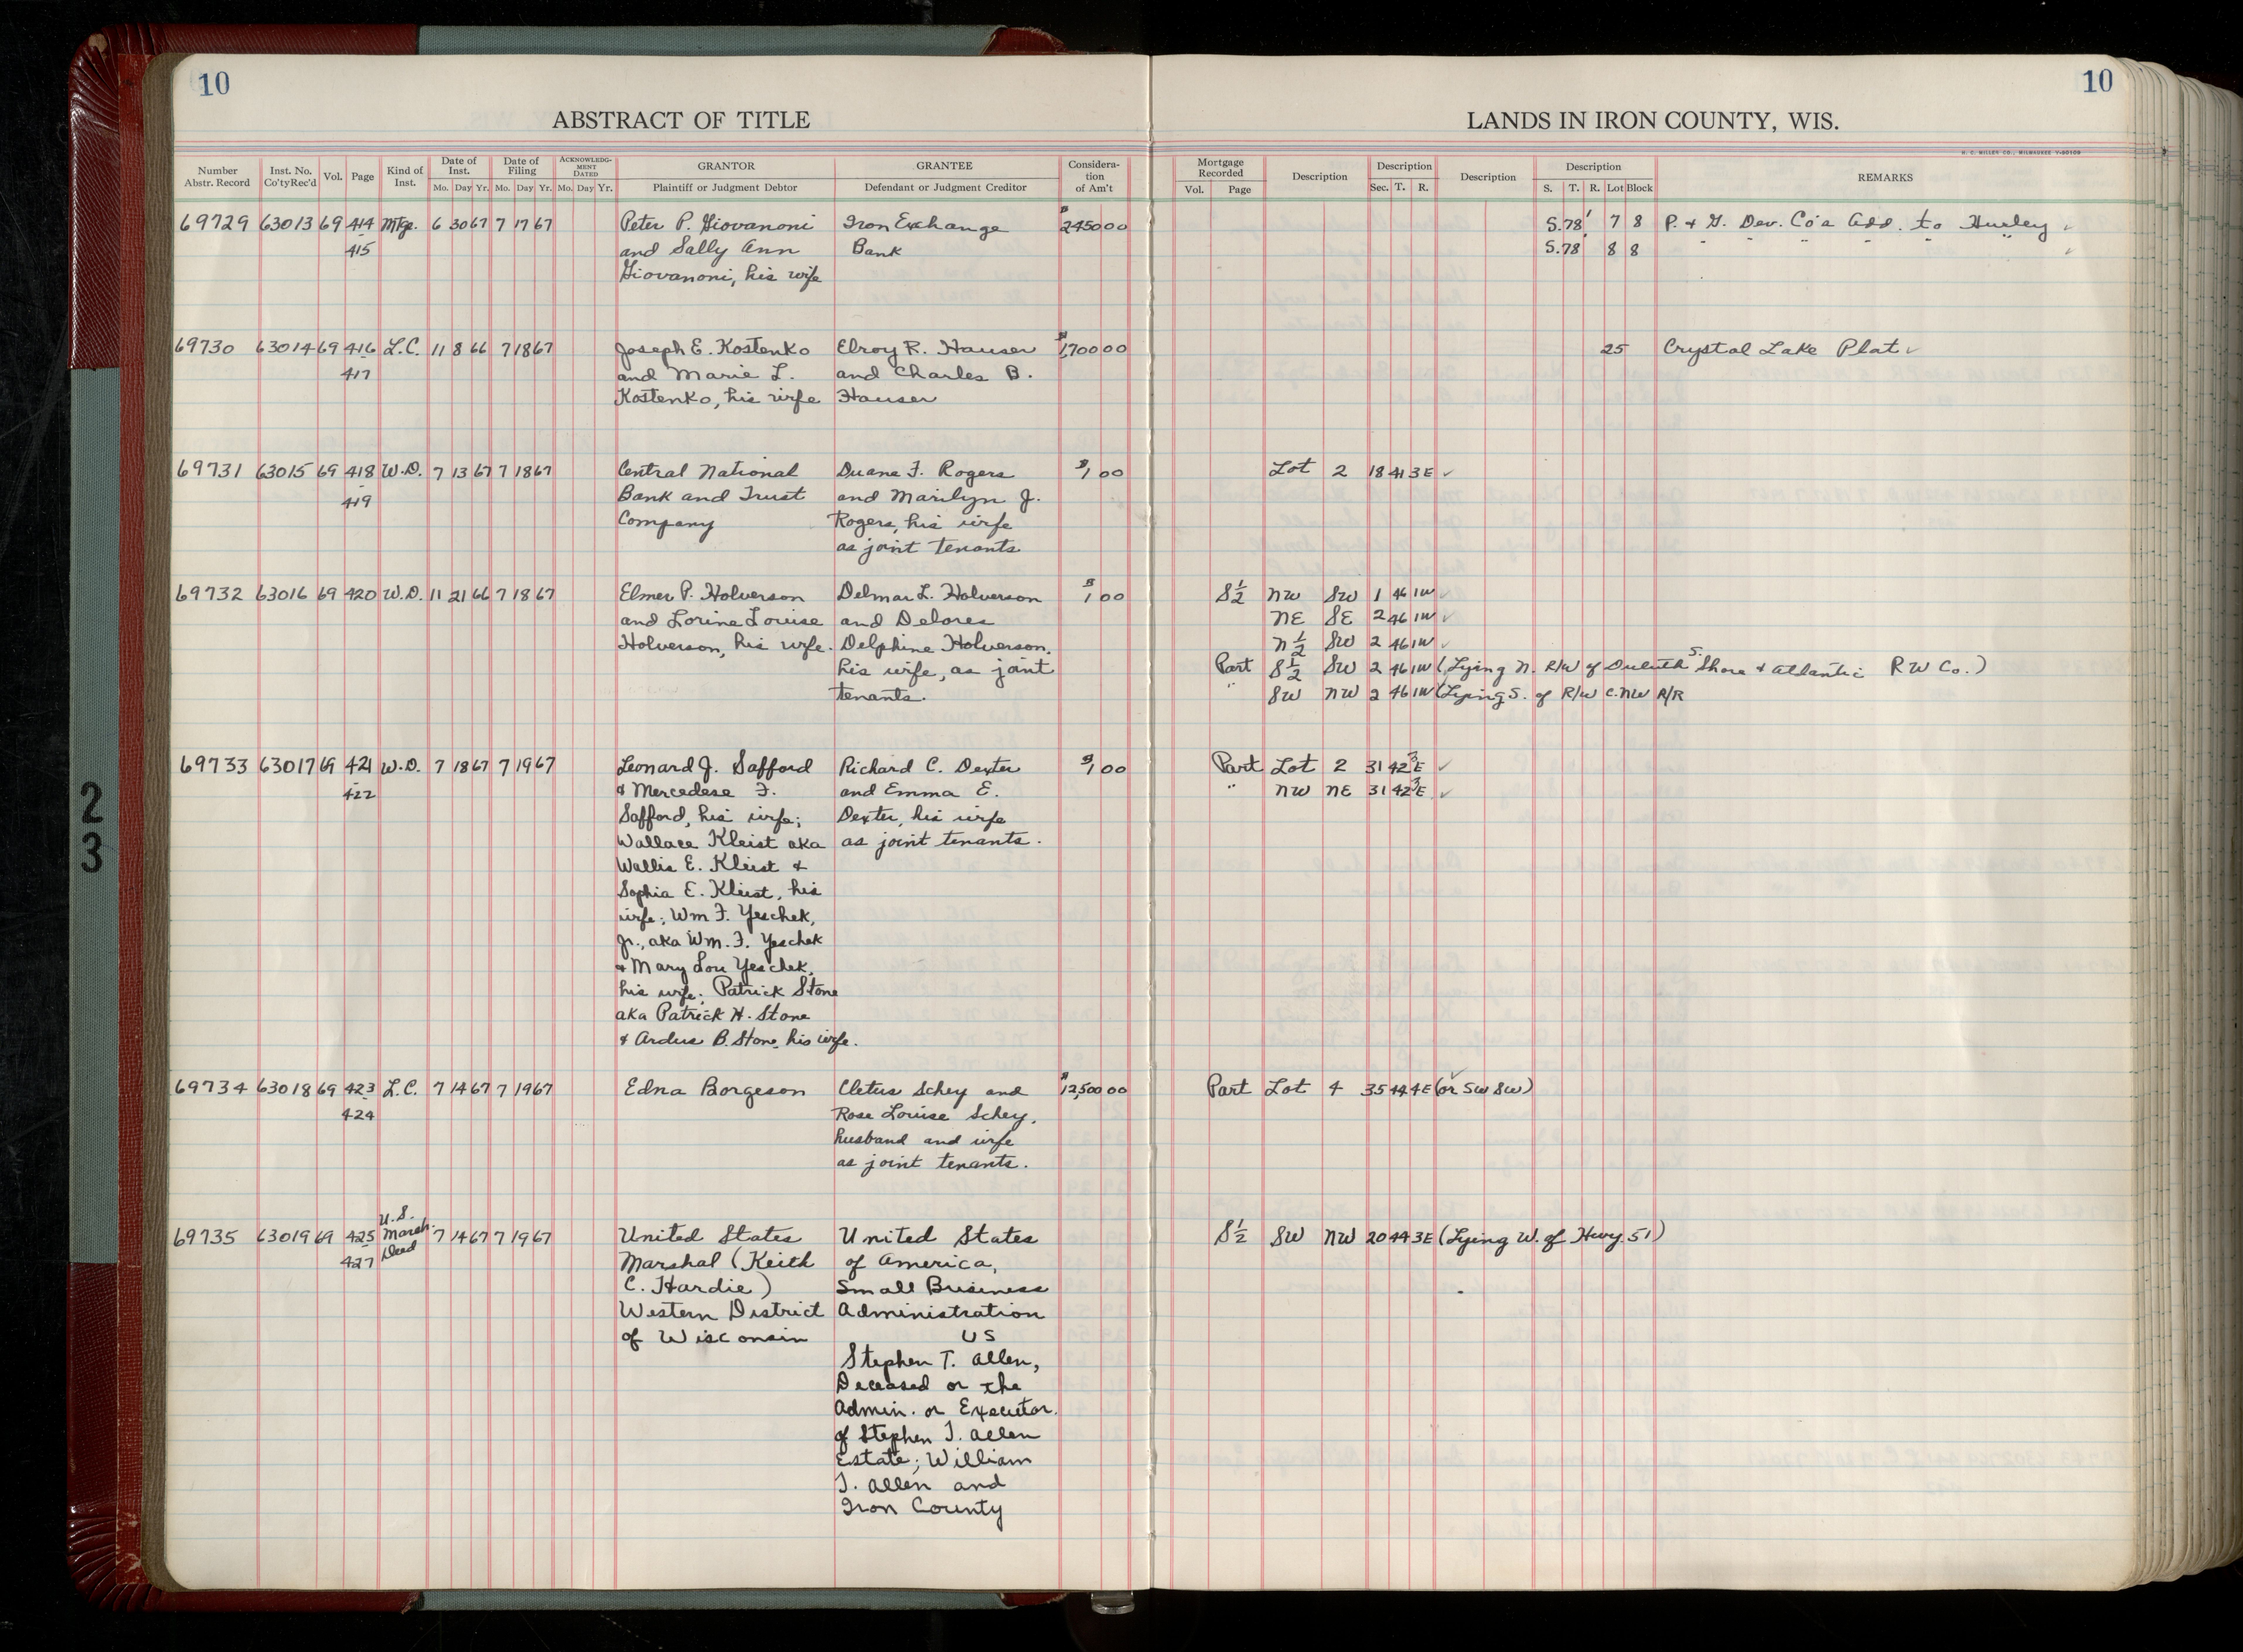 10
10
ABSTRACT OF TITLE
LANDS IN IRON COUNTY, WIS.
H. C. MILLER CO., MILWAUKEE Y-90109
Number Abstr. Record | Inst. No. Co'ty Rec'd | Vol. | Page | Kind of Inst. | Date of Inst. Mo. Day Yr. | Date of Filing Mo. Day Yr. | ACKNOWLEDG-MENT DATED Mo. Day Yr. | GRANTOR Plaintiff or Judgment Debtor | GRANTEE Defendant or Judgment Creditor | Considera-tion of Am't | Mortgage Recorded Vol. Page | Description | Description Sec. T. R. | Description | Description S. T. R. Lot Block | REMARKS
69729 63013 69 414 Mtge. 6 30 67 7 17 67 Peter P. Giovanoni Iron Exchange $24500 S.78' 7 8 P. & G. Dev. Co's Add. to Hurley ✓
415 and Sally Ann Bank S.78' 8 8 " " " " " " ✓
Giovanoni, his wife
69730 63014 69 416 L.C. 11 8 66 7 18 67 Joseph E. Kostenko Elroy R. Hauser $1,700 00 25 Crystal Lake Plat ✓
417 and Marie L. and Charles B.
Kostenko, his wife Hauser
69731 63015 69 418 W.D. 7 13 67 7 18 67 Central National Duane F. Rogers $1 00 Lot 2 18 41 3E ✓
419 Bank and Trust and Marilyn J.
Company Rogers, his wife
as joint tenants
69732 63016 69 420 W.D. 11 21 66 7 18 67 Elmer P. Holverson Delmar L. Holverson $1 00 S½ NW SW 1 46 1W ✓
and Lorine Louise and Delores NE SE 2 46 1W ✓
Holverson, his wife. Delphine Holverson, N½ SW 2 46 1W ✓
his wife, as joint Part S½ SW 2 46 1W (Lying N. R/W of Duluth S. Shore & Atlantic R W Co.)
tenants. " SW NW 2 46 1W (Lying S. of R/W C. NW R/R
69733 63017 69 421 W.D. 7 18 67 7 19 67 Leonard J. Safford Richard C. Dexter $1 00 Part Lot 2 31 42 3E ✓
422 & Mercedese F. and Emma E. " NW NE 31 42 3E ✓
Safford, his wife; Dexter, his wife
Wallace Kleist aka as joint tenants.
Wallis E. Kleist &
Sophia E. Kleist, his
wife; Wm F. Yeschek,
Jr., aka Wm. F. Yeschek
& Mary Lou Yeschek,
his wife; Patrick Stone
aka Patrick H. Stone
& Ardus B. Stone, his wife.
69734 63018 69 423 L.C. 7 14 67 7 19 67 Edna Borgeson Cletus Schey and $12,500 00 Part Lot 4 35 44 4E (or SW SW) ✓
424 Rose Louise Schey,
husband and wife
as joint tenants.
69735 63019 69 425 U.S. Marsh. Deed 7 14 67 7 19 67 United States United States S½ SW NW 20 44 3E (Lying W. of Hwy. 51)
427 Marshal (Keith of America,
C. Hardie) Small Business
Western District Administration
of Wisconsin US
Stephen T. Allen,
Deceased or the
Admin. or Executor.
of Stephen T. Allen
Estate; William
T. Allen and
Iron County
2
3